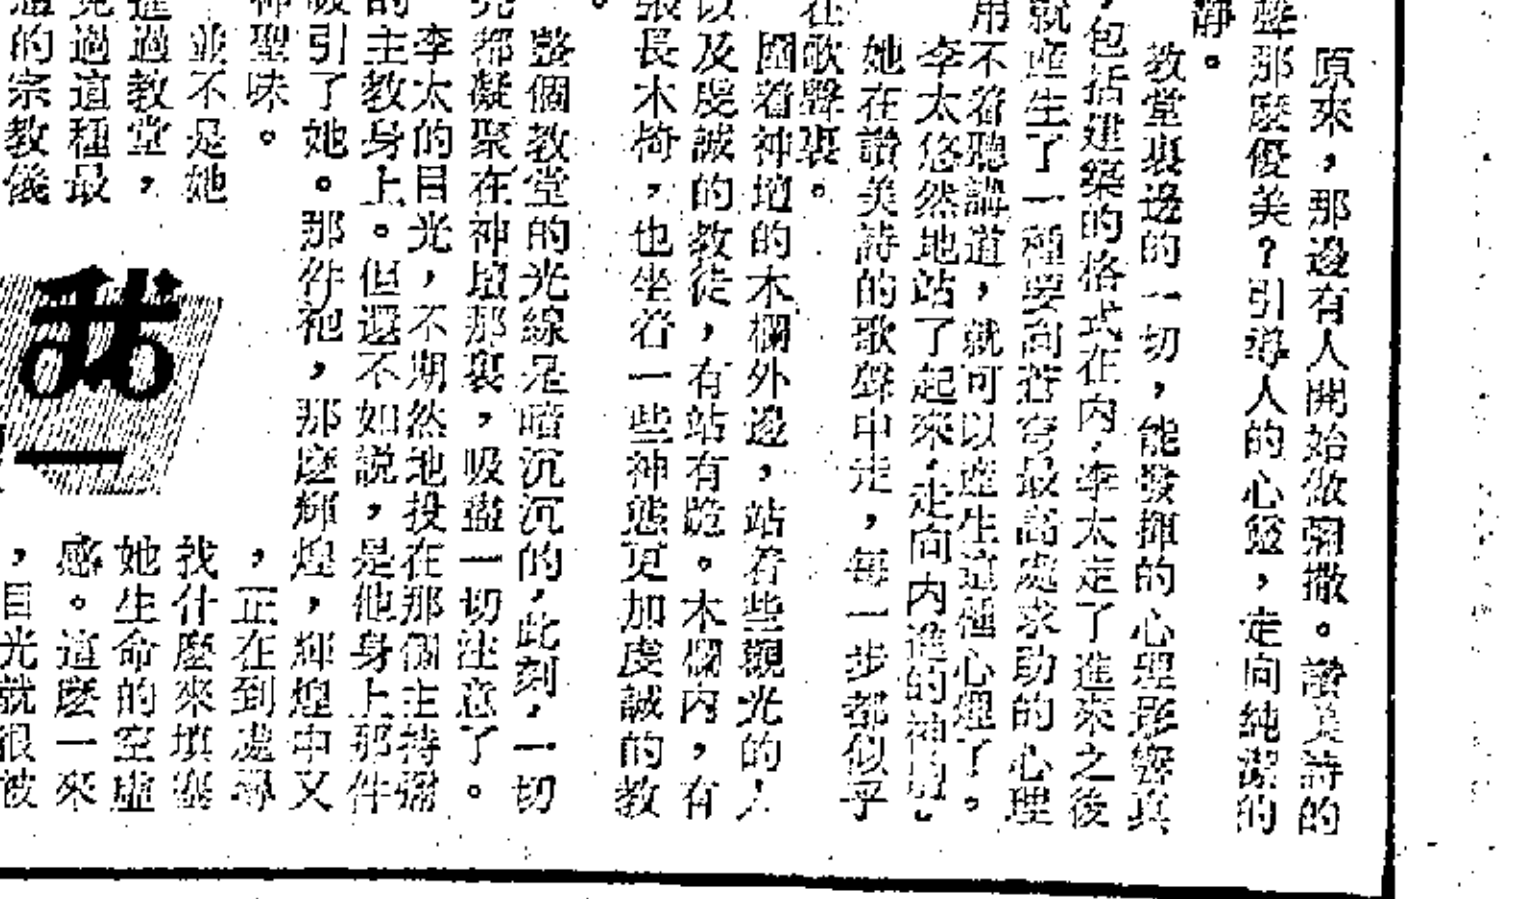 原來，那邊有人開始做彌撒。讚美詩的
聲那麼優美？引導人的心靈，走向純潔的
靜。
教堂裏邊的一切，能發揮的心理影響真
，包括建築的格式在內，李太走了進來之後
就產生了一種要向蒼穹最高處求助的心理
用不着聽講道，就可以產生這種心理了。
李太悠然地站了起來，走向內進的神
她在讚美詩的歌聲中走，每一步都似乎
在歌聲裏。
圍着神壇的木欄外邊，站着些觀光的人
以及虔誠的教徒，有站有跪。木欄內，有
張長木椅，也坐着一些神態更加虔誠的教
。
整個教堂的光線是暗沉沉的，此刻，一切
光都凝聚在神壇那裏，吸盡一切注意了。
李太的目光，不期然地投在那個主持彌
的主教身上。但還不如說，是他身上那件
吸引了她。那件袍，那麼輝煌，輝煌中又
神聖味。
，正在到處尋
並不是她
找什麼來填塞
進過教堂，
她生命的空虛
見過這種最
感。這麼一來
通的宗教儀
，目光就很被